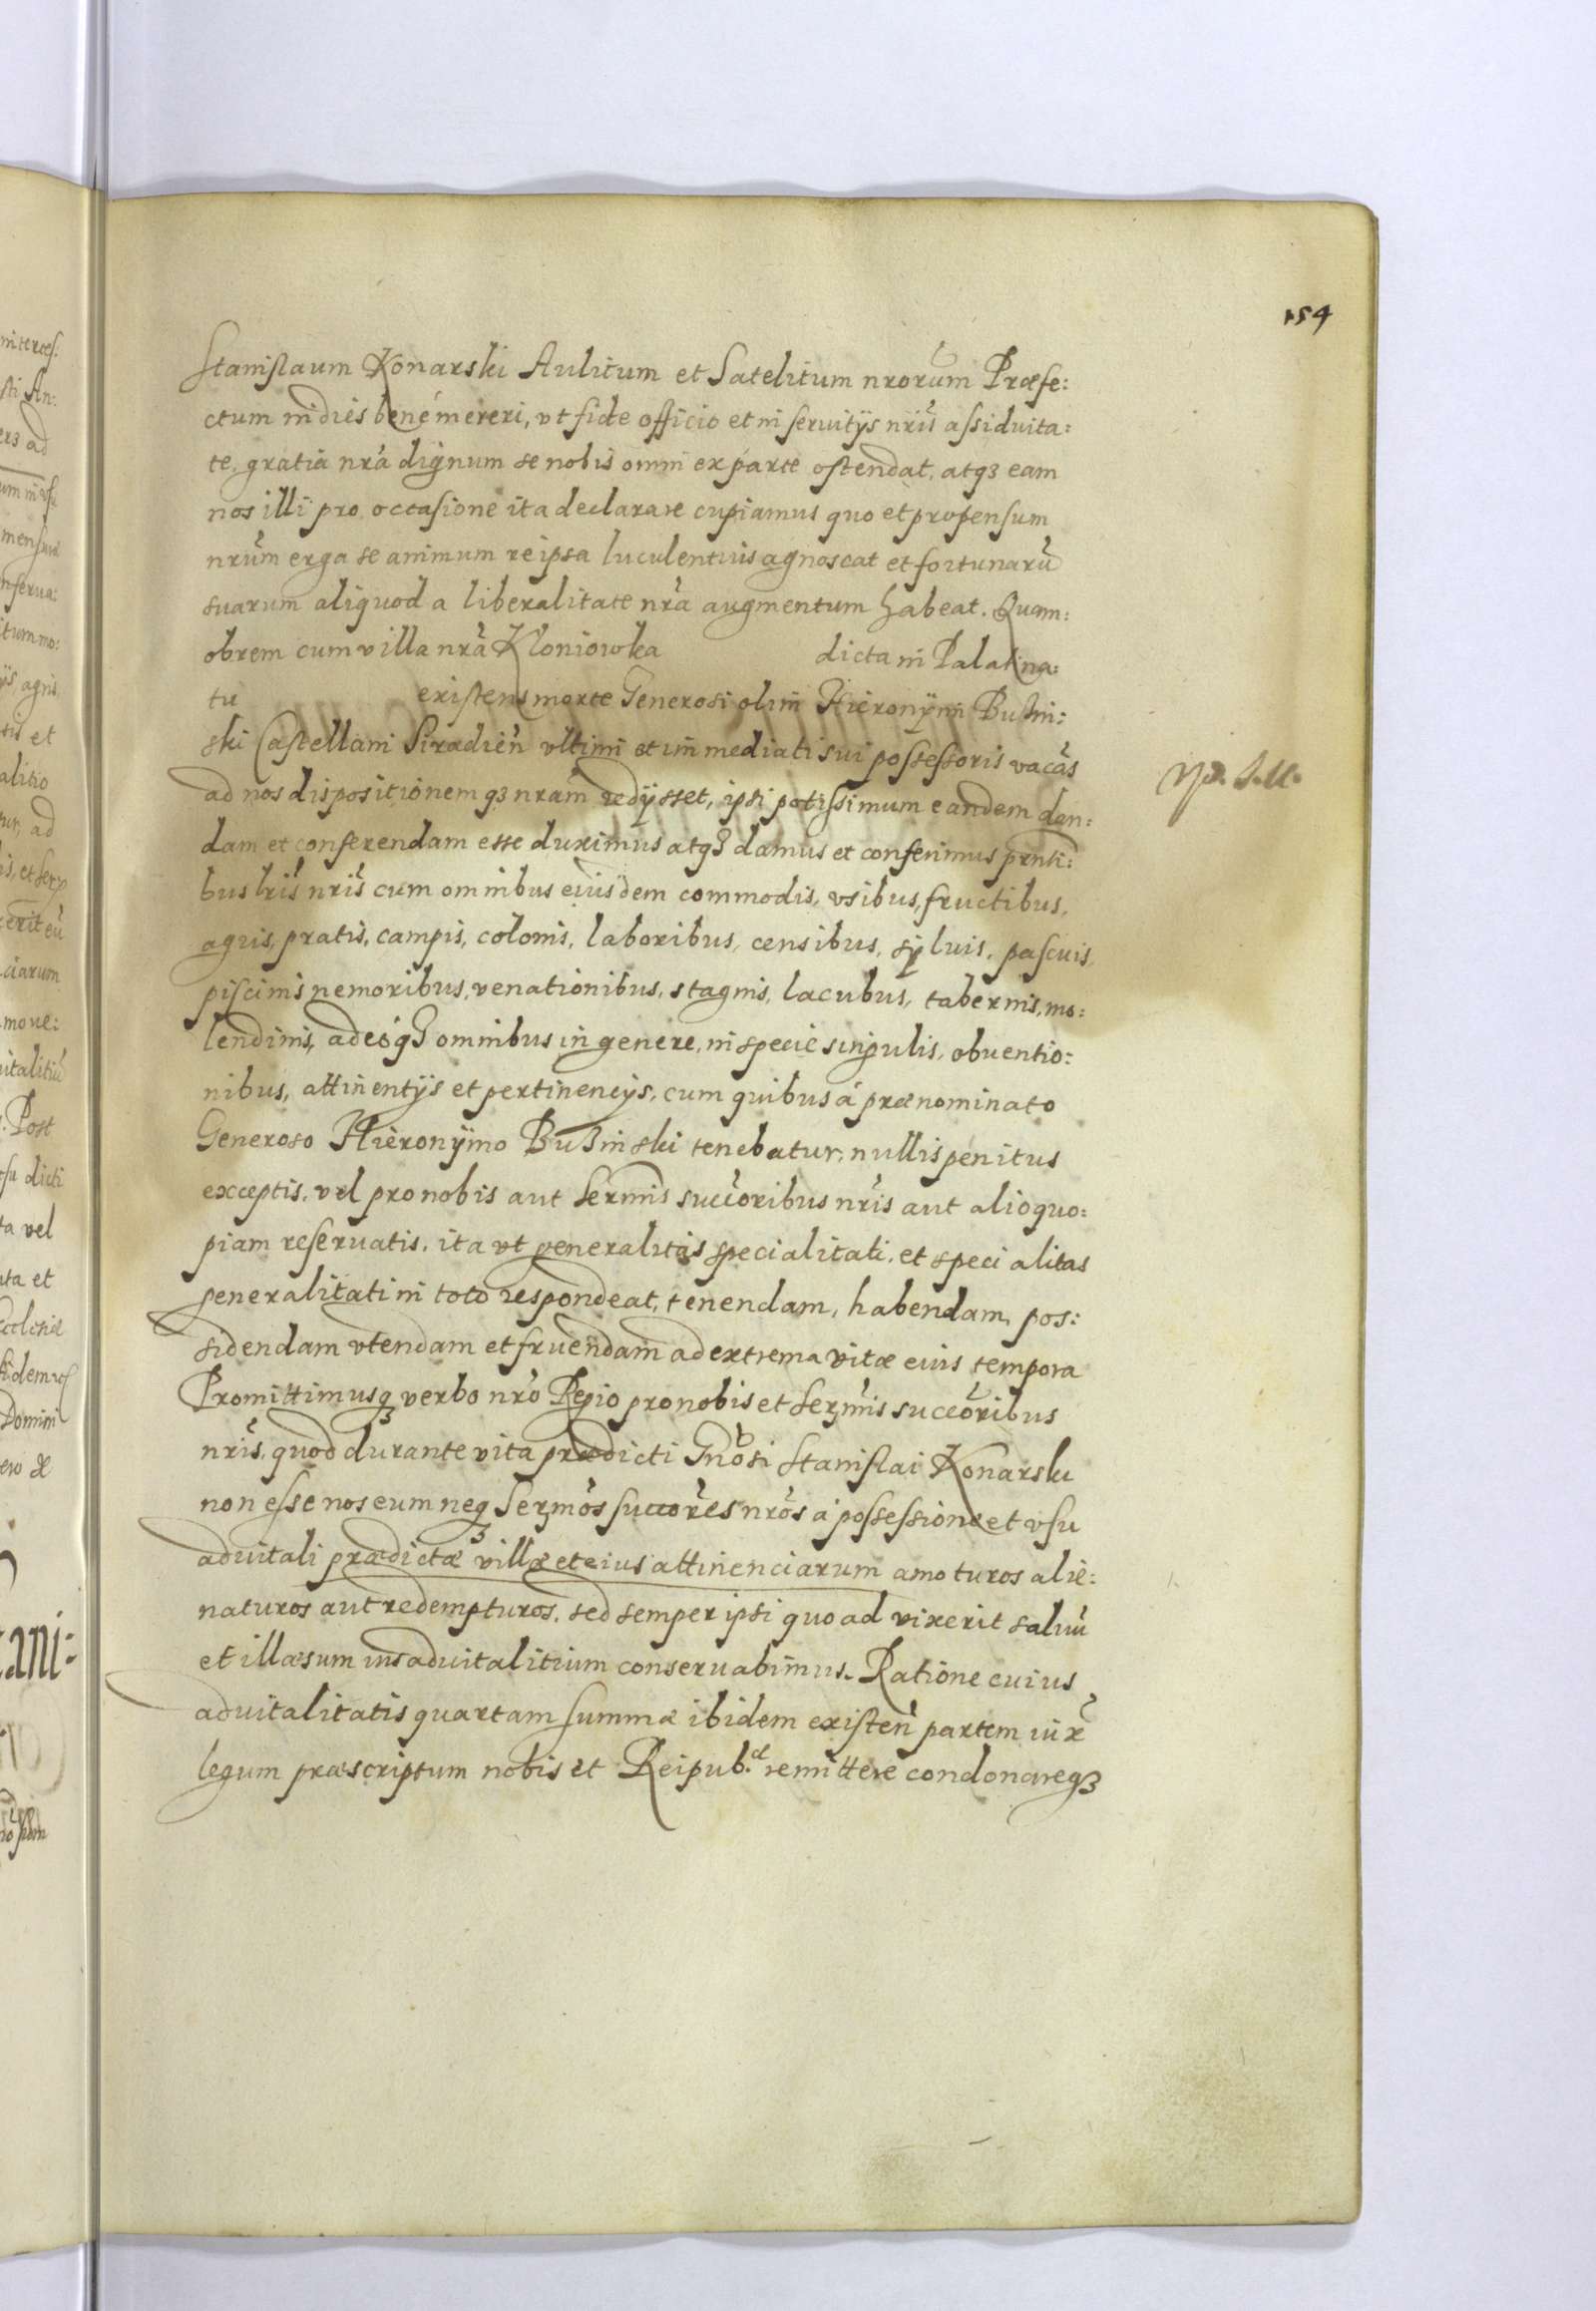 154
Stanislaum Konarski Aulicum et Satelitum nrorum Præfe:
ctum indies bene mereri, vt fide officio et in seruitijs nris assiduita:
te, gratia nra dignum se nobis omni ex parte ostendat, atqꝫ eam
nos illi pro occasione ita declarare cupiamus quo et propensum
nrum erga se animum re ipsa luculentius agnoscat et fortunarũ
suarum aliquod a liberalitate nra augmentum habeat. Quam:
obrem cum villa nra Kloniowka dicta in Palatina:
tu existens morte Generosi olim Hieronÿmi Bużin:
ski Castellani Siradien vltimi et immediati sui possessoris vacãs
ad nos dispositionemqꝫ nram redijsset, ipsi potissimum eandem dan:
dam et conferendam esse duximus atqꝫ damus et conferimus prnti:
bus lris nris cum omnibus eiusdem commodis, vsibus, fructibus,
agris, pratis, campis, colonis, laboribus, censibus, syluis, pascuis,
piscinis nemoribus, venationibus, stagnis, lacubus, tabernis, mo:
lendinis, adeoqꝫ omnibus in genere, in specie singulis, obuentio:
nibus, attinentijs et pertinencijs, cum quibus á prænominato
Generoso Hieronÿmo Bużinski tenebatur, nullis penitus
exceptis, vel pro nobis aut Sermis succoribus nris aut alio quo:
piam reseruatis, ita vt generalitas specialitati, et specialitas
generalitati in toto respondeat, tenendam, habendam, pos:
sidendam vtendam et fruendam ad extrema vitæ eius tempora
Promittimusqꝫ verbo nro Regio pro nobis et Sermis succoribus
nris, quod durante vita prædicti Gnosi Stanislai Konarski
non esse nos eum neqꝫ Sermos succores nros á possessione et vsu
aduitali prædictæ villæ et eius attinenciarum amoturos alie:
naturos aut redempturos, sed semper ipsi quo ad vixerit saluũ
et illæsum ius aduitalitium conseruabimus. Ratione cuius
aduitalitatis quartam summæ ibidem existen partem iux
legum præscriptum nobis et Reipub. remittere condonareqꝫ